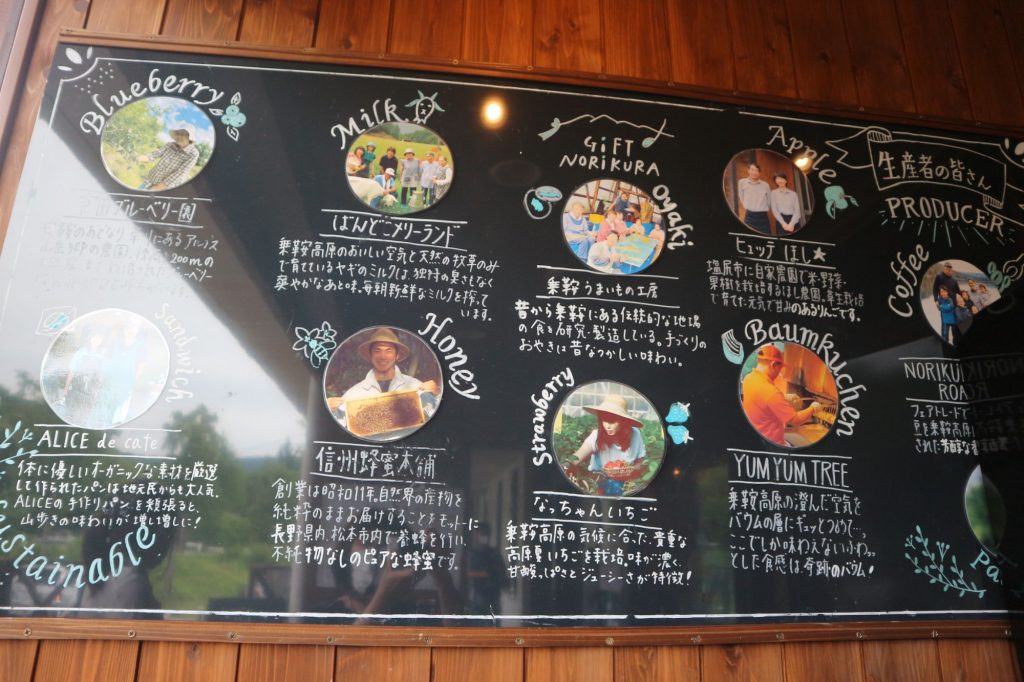 Blueberry
ブルーベリー園
Milk
ばんどこメリーランド
乗鞍高原のおいしい空気と天然の牧草のみ
で育てているヤギのミルクは、独特の臭さもなく
爽やかなあと味。毎朝新鮮なミルクを搾って
います。
GiFT
NORiKURA
Oyaki
乗鞍うまいもの工房
昔から乗鞍にある伝統的な地場
の食を研究・製造している。手づくりの
おやきは昔なつかしい味わい。
Apple
ヒュッテ ほし★
塩尻市に自家農園で米・野菜・
果樹を栽培するほし農園。草生栽培
で育てた元気で甘みのあるりんごです。
生産者の皆さん
PRODUCER
Coffee
NORIKU
ROAS
フェアトレードで
豆を乗鞍高原
された芳醇な
Sandwich
ALICE de cafe
体に優しいオーガニックな素材を厳選
して作られたパンは地元民からも大人気。
ALICEの手作りパンを頬張ると、
山歩きの味わいが増し増しに!
Sustainable
Honey
信州蜂蜜本舗
創業は昭和11年。自然界の産物を
純粋のままお届けすることをモットーに
長野県内、松本市内で養蜂を行い、
不純物なしのピュアな蜂蜜です。
Strawberry
なっちゃんいちご
乗鞍高原の気候に合った、貴重な
高原夏いちごを栽培。味が濃く、
甘酸っぱさとジューシーさが特徴!
Baumkuchen
YUM YUM TREE
乗鞍高原の澄んだ空気を
バウムの層にギュッとつめて...
ここでしか味わえないふわっ
とした食感は、奇跡のバウム!
Pa